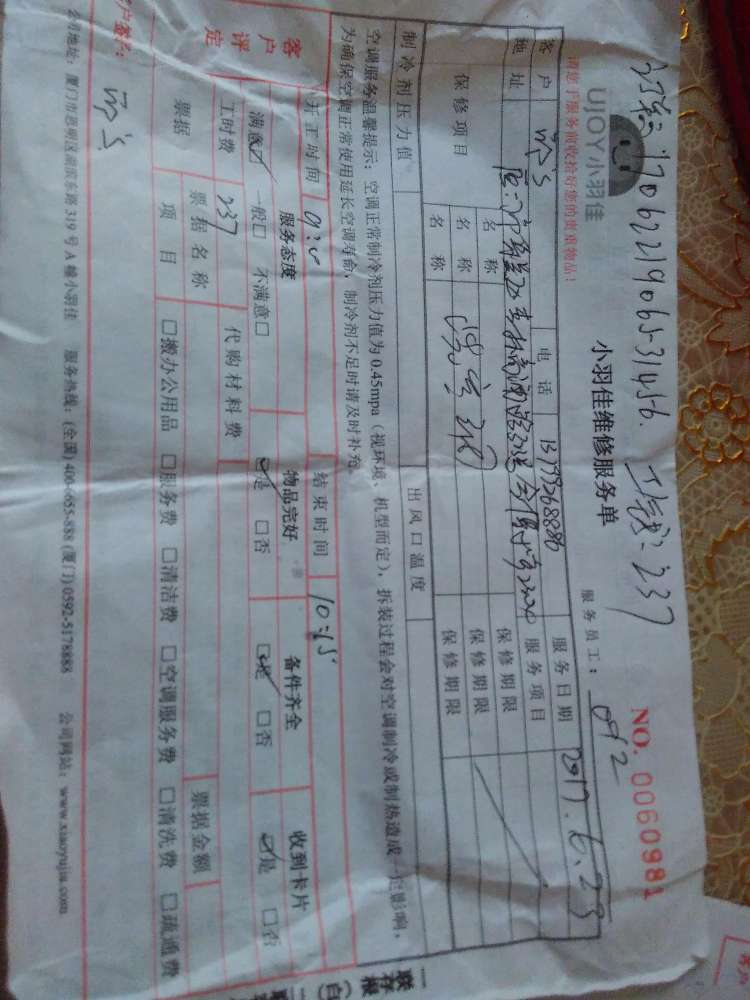 订单:17062219065-31456. 工号:237
UJOY小羽佳
小羽佳维修服务单
NO. 0060981
请您于服务前收拾好您的贵重物品!
服务员工: 092
客户
电话 13799268886
服务日期 2017.6.23
地址
服务项目
保修项目
名称
保修期限
名称
保修期限
名称
保修期限
制冷剂压力值
出风口温度
空调服务温馨提示:空调正常制冷剂压力值为0.45mpa(视环境、机型而定),拆装过程会对空调制冷或制热造成一定影响,
为确保空调正常使用延长空调寿命,制冷剂不足时请及时补充。
开工时间
结束时间 10:15
客户评定
服务态度
物品完好
备件齐全
收到卡片
满意☑ 一般□ 不满意□
☑是 □否
☑是 □否
☑是 □否
工时费 237
代购材料费
票据
票据名称
票据金额
项目
□搬办公用品 □服务费 □清洁费 □空调服务费 □清洗费 □疏通费
客户签字:
公司地址:厦门市思明区湖滨东路319号A幢小羽佳 服务热线:(全国)400-655-888 (厦门)0592-5178888 公司网站:www.xiaoyujia.com